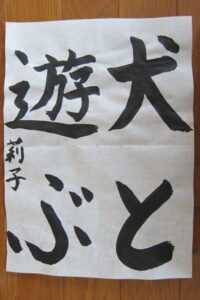 犬と
遊ぶ
莉子